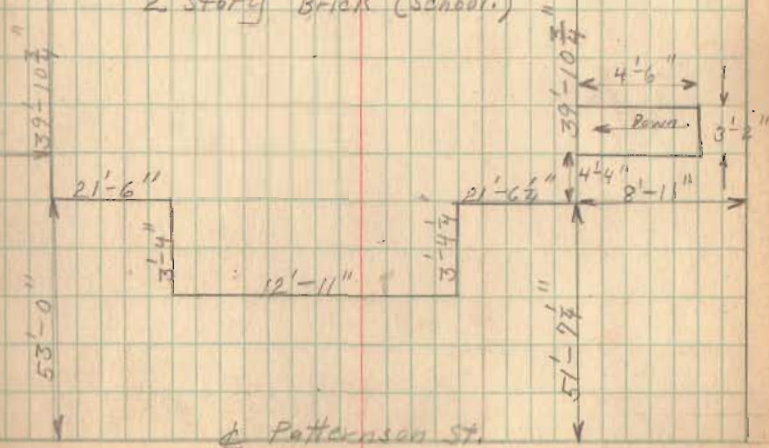 2 Story Brick (School.)
39'-10 3/4"
39'-10 3/4"
4'-6"
Down
3'-2"
21'-6"
21'-6 1/4"
4'-4"
8'-11"
3'-4"
3'-4 1/4"
12'-11"
53'-0"
51'-7 1/2"
℄ Patternson St.